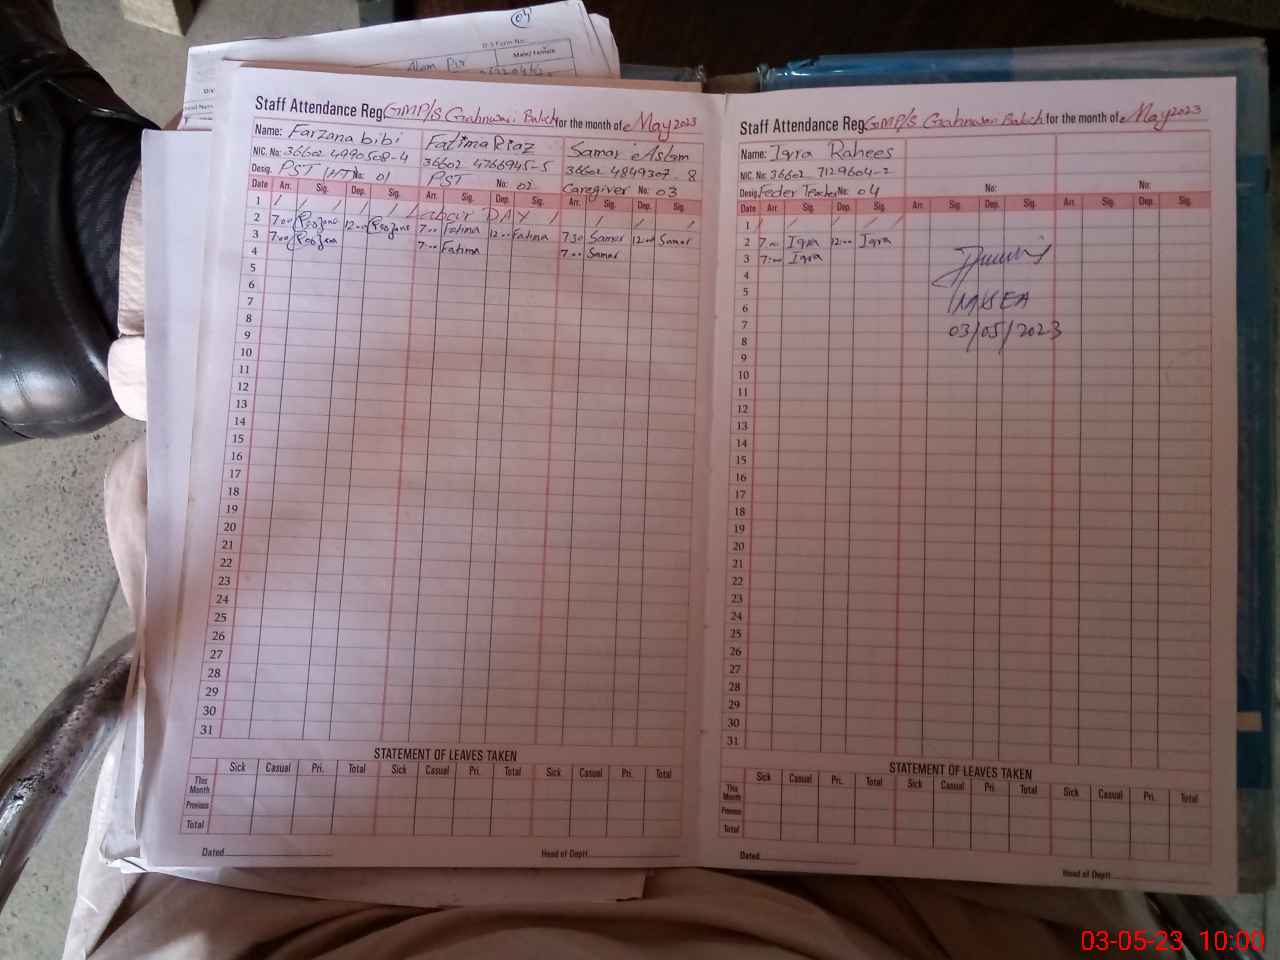 04
D.S Form No.
Male/Female
Alam Pir
Staff Attendance Reg. GMP/S Gahnwaii Balch for the month of May 2023
Name: Farzana bibi Fatima Riaz Samar Aslam
NIC. No: 36602 4990508-4 36602 4766945-5 36602 4849307-8
Desig. PST (HT) No: 01 PST No: 02 Caregiver No: 03
Date Arr. Sig. Dep. Sig. Arr. Sig. Dep. Sig. Arr. Sig. Dep. Sig.
1 / / / / Labour DAY / / / / /
2 7:00 12:00 7:00 Fatima 12:00 Fatima 7:30 Samar 12:00 Samar
3 7:00 7:00 Fatima 7:00 Samar
4
5
6
7
8
9
10
11
12
13
14
15
16
17
18
19
20
21
22
23
24
25
26
27
28
29
30
31
STATEMENT OF LEAVES TAKEN
Sick Casual Pri. Total Sick Casual Pri. Total Sick Casual Pri. Total
This Month
Previous
Total
Dated Head of Deptt
Staff Attendance Reg. GMP/S Gahnwaii Balch for the month of May 2023
Name: Iqra Rahees
NIC. No: 36602 7129604-2
Desig. Feder Teacher No: 04 No: No:
Date Arr. Sig. Dep. Sig. Arr. Sig. Dep. Sig. Arr. Sig. Dep. Sig.
1 / / / /
2 7:00 Iqra 12:00 Iqra
3 7:00 Iqra
4
5
6
7
8
9
10
11
12
13
14
15
16
17
18
19
20
21
22
23
24
25
26
27
28
29
30
31
MEA
03/05/2023
STATEMENT OF LEAVES TAKEN
Sick Casual Pri. Total Sick Casual Pri. Total Sick Casual Pri. Total
This Month
Previous
Total
Dated Head of Deptt
03-05-23 10:00